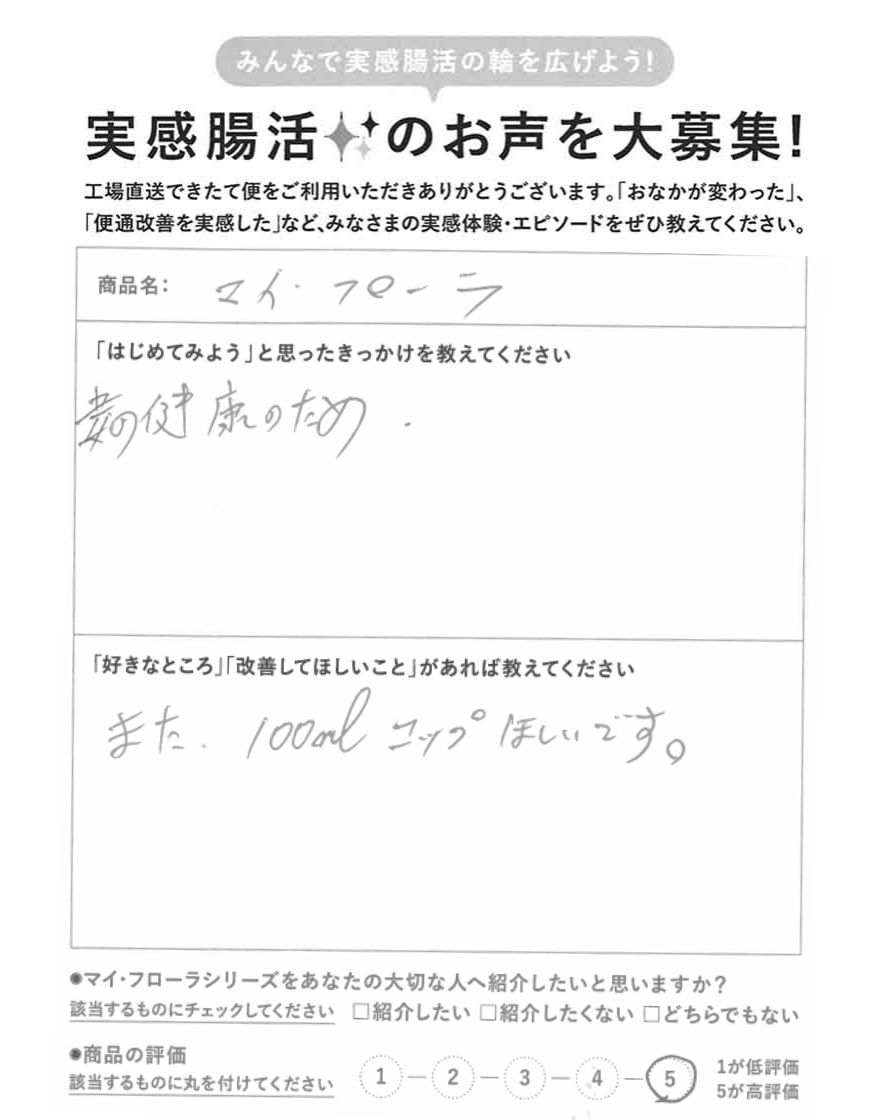 みんなで実感腸活の輪を広げよう!
実感腸活のお声を大募集!
工場直送できたて便をご利用いただきありがとうございます。「おなかが変わった」、
「便通改善を実感した」など、みなさまの実感体験・エピソードをぜひ教えてください。
商品名: マイ・フローラ
「はじめてみよう」と思ったきっかけを教えてください
妻の健康のため.
「好きなところ」「改善してほしいこと」があれば教えてください
また. 100ml コップ ほしいです。
●マイ・フローラシリーズをあなたの大切な人へ紹介したいと思いますか?
該当するものにチェックしてください □紹介したい □紹介したくない □どちらでもない
●商品の評価
該当するものに丸を付けてください 1 — 2 — 3 — 4 — 5 1が低評価
5が高評価